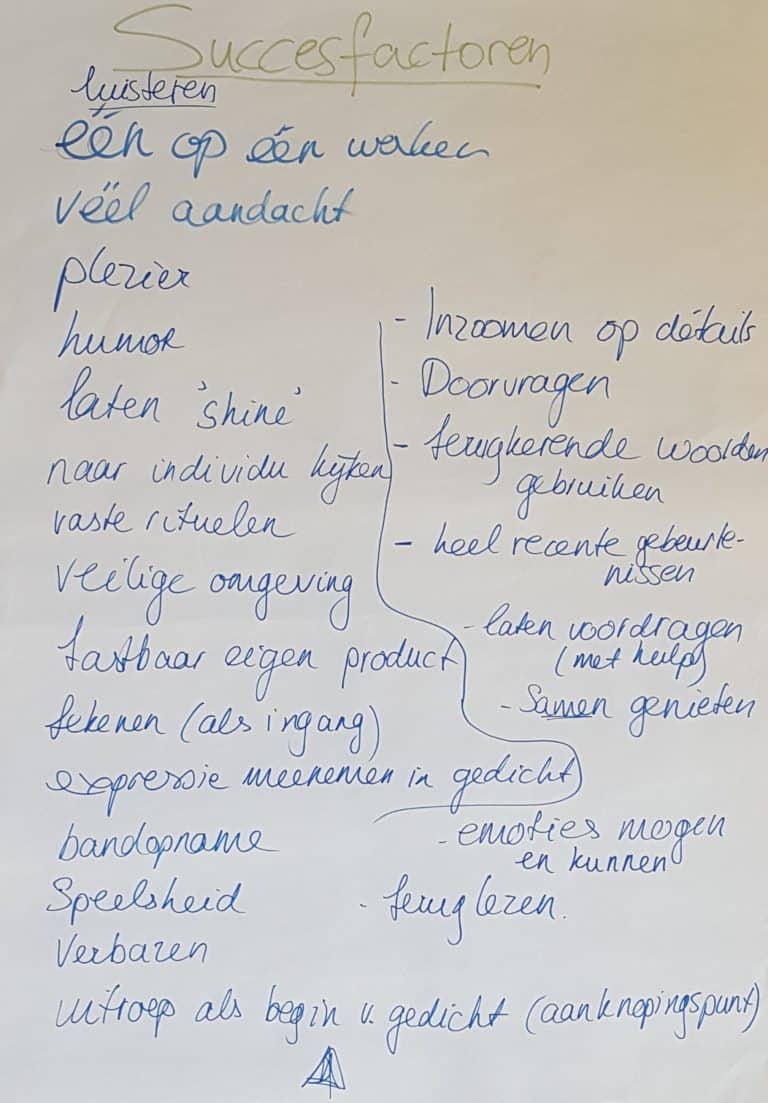 Succesfactoren
luisteren
één op één werken
véél aandacht
plezier
humor
laten 'shine'
naar individu kijken
vaste rituelen
veilige omgeving
tastbaar eigen product
tekenen (als ingang)
expressie meenemen in gedicht
bandopname
Speelsheid
Verbazen
uitroep als begin v. gedicht (aanknopingspunt)
- Inzoomen op détails
- Doorvragen
- terugkerende woorden
gebruiken
- heel recente gebeurte-
nissen
- laten voordragen
(met hulp)
- Samen genieten
- emoties mogen
en kunnen
- terug lezen.